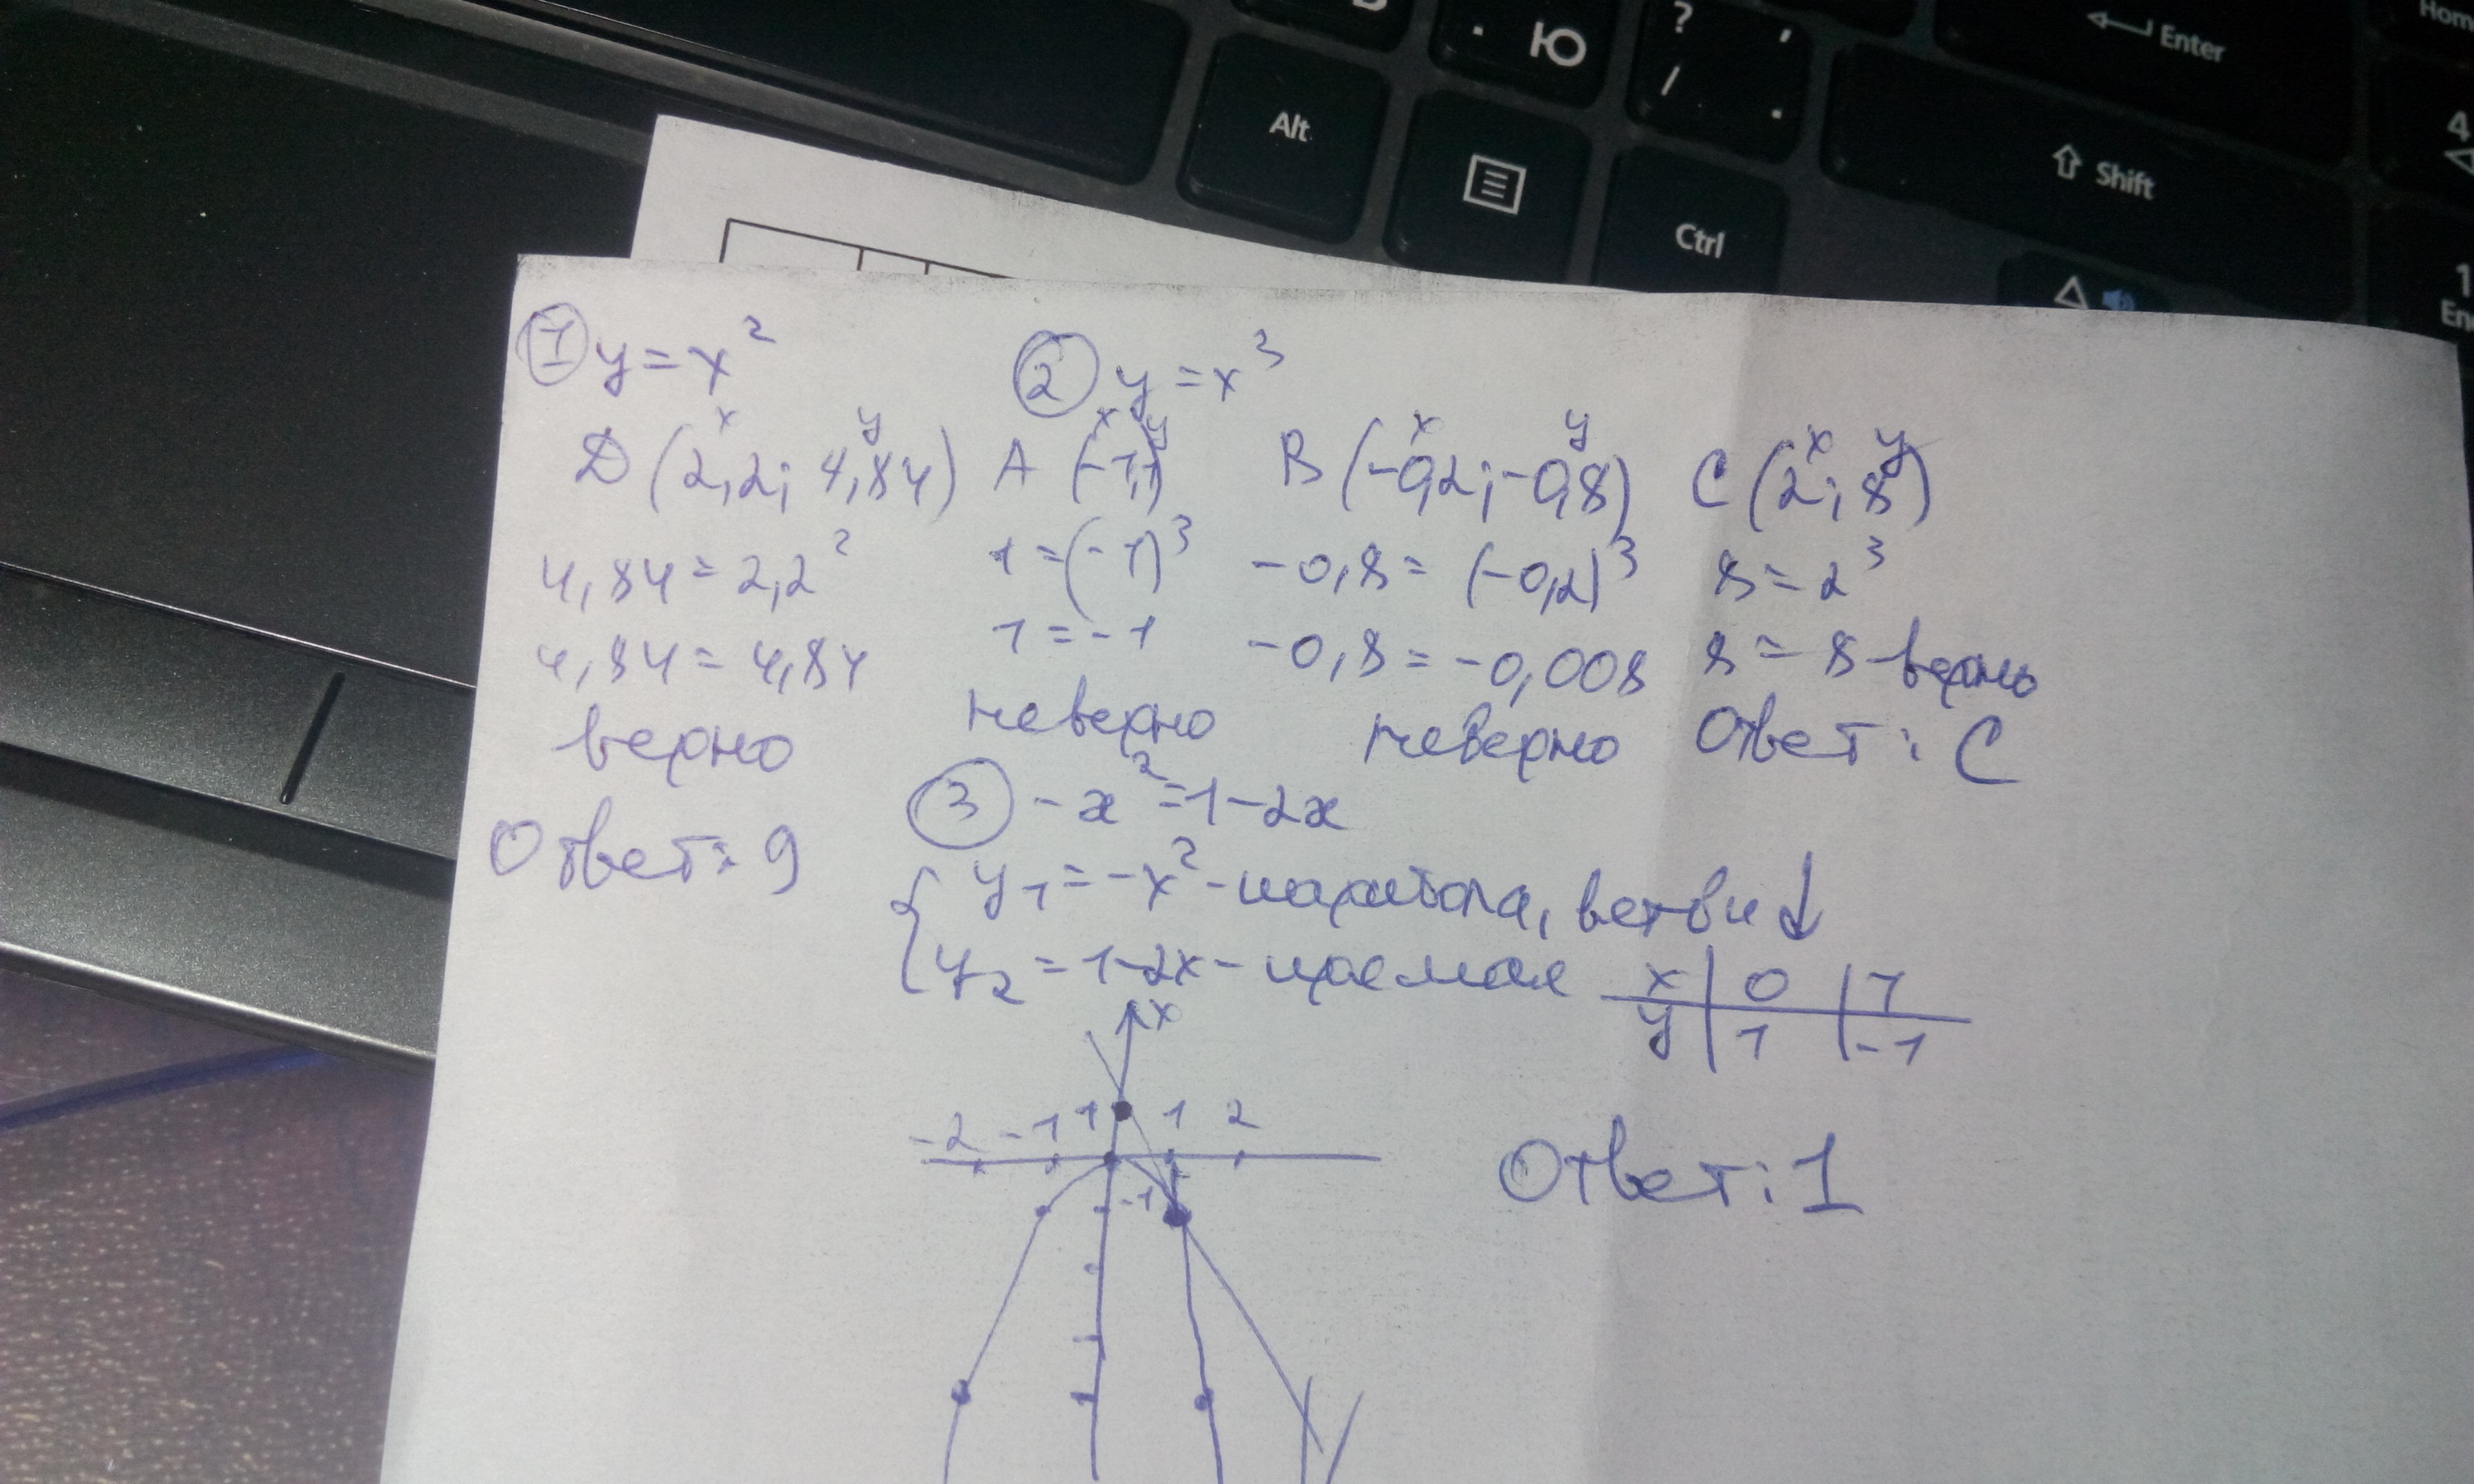 . Ю
? ,
/ .
Enter
Hom
Alt
Shift
Ctrl
4
1
① y = x²
x y
D (2,2; 4,84)
4,84 = 2,2²
4,84 = 4,84
верно
Ответ: 9
② y = x³
x y
A (-1,1)
1 = (-1)³
1 = -1
неверно
x y
B (-0,2; -0,8)
-0,8 = (-0,2)³
-0,8 = -0,008
неверно
x y
C (2; 8)
8 = 2³
8 = 8 - верно
Ответ: C
③ -x² = 1 - 2x
{ y₁ = -x² - парабола, ветви ↓
y₂ = 1 - 2x - прямая
x | 0 | 1
y | 1 | -1
x
-2 -1 1 1 2
-1
Ответ: 1